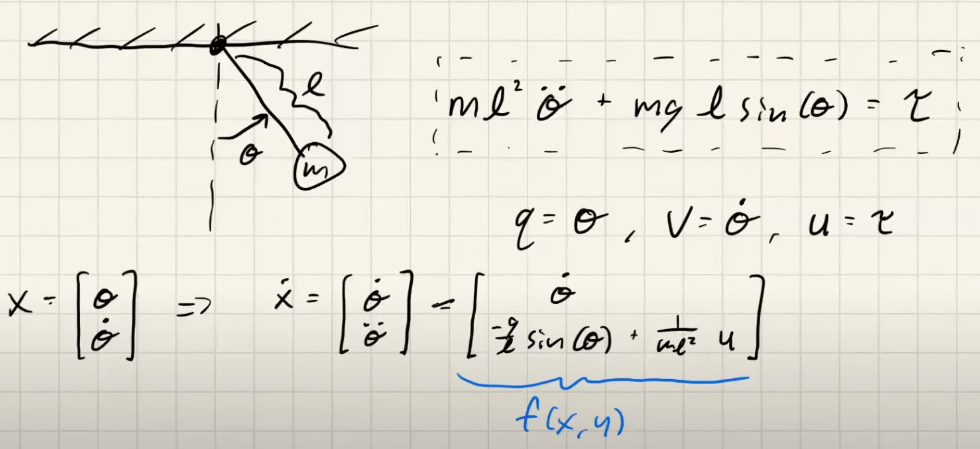 l
θ
m
ml² θ̈ + mg l sin(θ) = τ
q = θ, v = θ̇, u = τ
x = [θ θ̇] => ẋ = [θ̇ θ̈] = [θ̇ -g/l sin(θ) + 1/ml² u]
f(x,u)